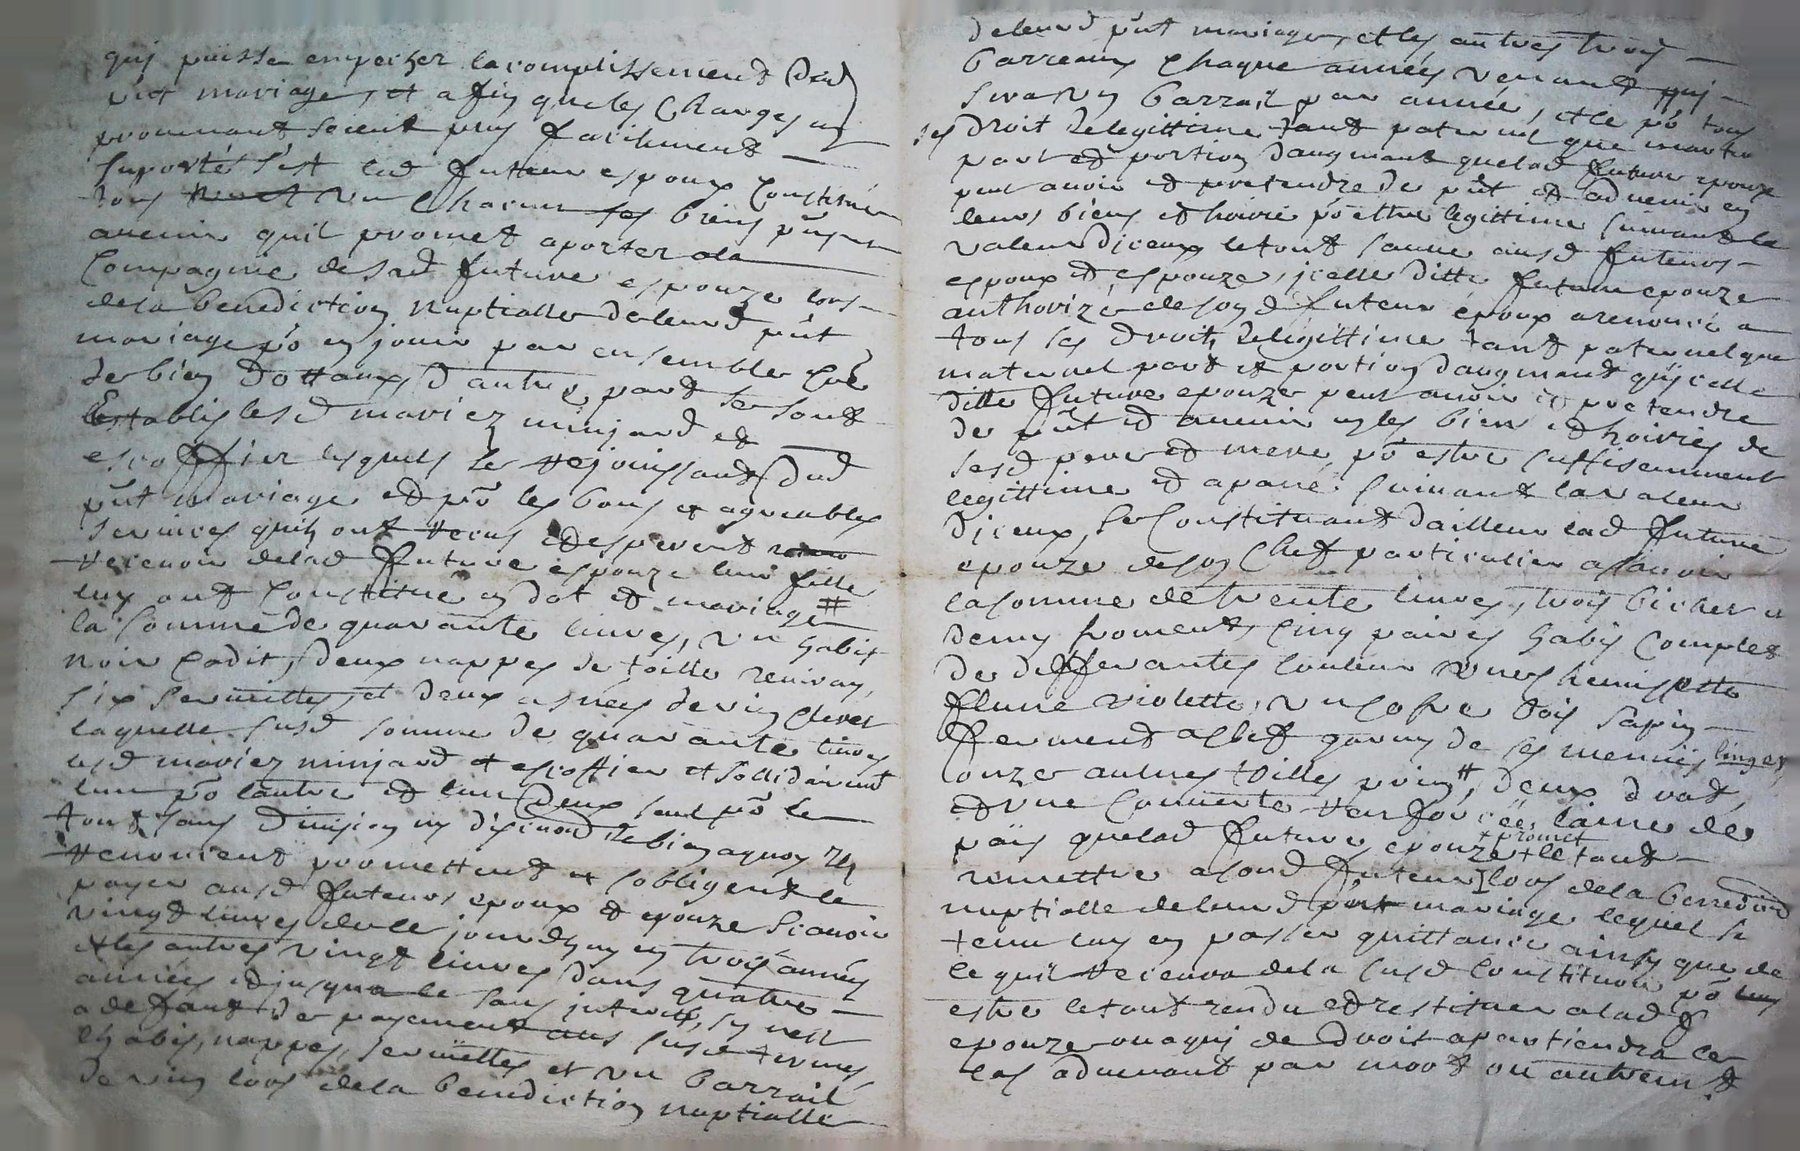 quj puisse empecher lacomplissement dud
nct mariage, et afin que les Charges en
prouenant soient plus facilment
suporté s'est led futteur espoux Constitué
tous un Chacun ses biens pnts et
auenir quil promet aporter a la
Compagnie de sad future espouze lors
de la benediction nuptialle de leurd pnt
mariage po en jouir par ensemble come
de bien dottaux, d'autre part se sont
establis lesd mariez minjard et
escoffier lesquels se rejouissant dud
pnt mariage et po les bons et agreables
seruices quils ont receus et esperent
receuoir de lad future espouze leur fille
luy ont constitue en dot et mariage
la somme de quarante liures, un habit
noir cadit, deux nappes de toille
six seruiettes, et deux asnées de vin cleret
laquelle susd somme de quarante liures
lesd mariez minjard et escoffier et sollidairemt
lun po lautre et lun deux seul po le
tout sans diuision ny discution de bien a quoy ils
renoncent promettent et sobligent de
payer ausd futeurs epoux et epouze scauoir
vingt liures de ce jourdhuy en trois années
et les autres vingt liures dans quatre
années et jusqua ce sans jnterest, sy nest
a defaut de payement aus susd termes
lhabis, nappes, seruiettes et un barrail
de vin lors de la benediction nuptialle
de leurd pnt mariage, et les autres trois
barreaux chaque années venant quj
sera un barrail par année, et ce po tous
ses droit de legittime tant paternel que maternel
part et portion daugmant que lad future epouze
peut auoir et pretendre de pnt et aduenir en
leurs biens et hoirie po estre legittime suiuant la
valeur diceux le tout sauue ausd futeurs
espoux et espouze, jcelle ditte future epouze
authorizé de son d futeur époux a renoncé a
tous ses droits de legittime tant paternel que
maternel part et portion daugmant quicelle
ditte future epouze peut auoir et pretendre
de pnt et auenir en les bien et hoiries de
sesd pere et mere po estre suffisemment
legittime et apané suiuant la valeur
diceux, se Constituant dailleur lad future
epouze de son Chef particulier a scauoir
la somme de trente liures, trois bichet et
demy froment, cinq paires habis complet
de differantes couleur une chemissette
flune violette, un cofre bois sapin
ferment a clef garny de ses menues linges,
onze autres toilles prin, deux drat,
et une couuerte renforcée laine de
païs que lad future epouze promet le tout
remettre a sond futeur lors de la benediction
nuptialle de leurd pnt mariage lequel se
tenu luy en passer quittance ainsy que de
ce quil receura de la susd Constitution po luy
estre le tout rendu et restituer a lad f
epouze ou a quj de droit apartiendra le
cas aduenant par mort ou autrement